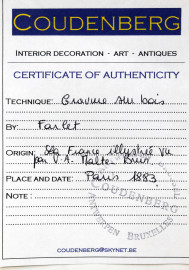 COUDENBERG
INTERIOR DECORATION - ART - ANTIQUES
CERTIFICATE OF AUTHENTICITY
TECHNIQUE: Gravure sur bois
BY: Farlet
ORIGIN: La France illustrée VII
par V.A. Malte Brun.
PLACE AND DATE: Paris 1883.
NOTE :
COUDENBERG
ANTIQUITEITEN BRUXELLES
COUDENBERG@SKYNET.BE